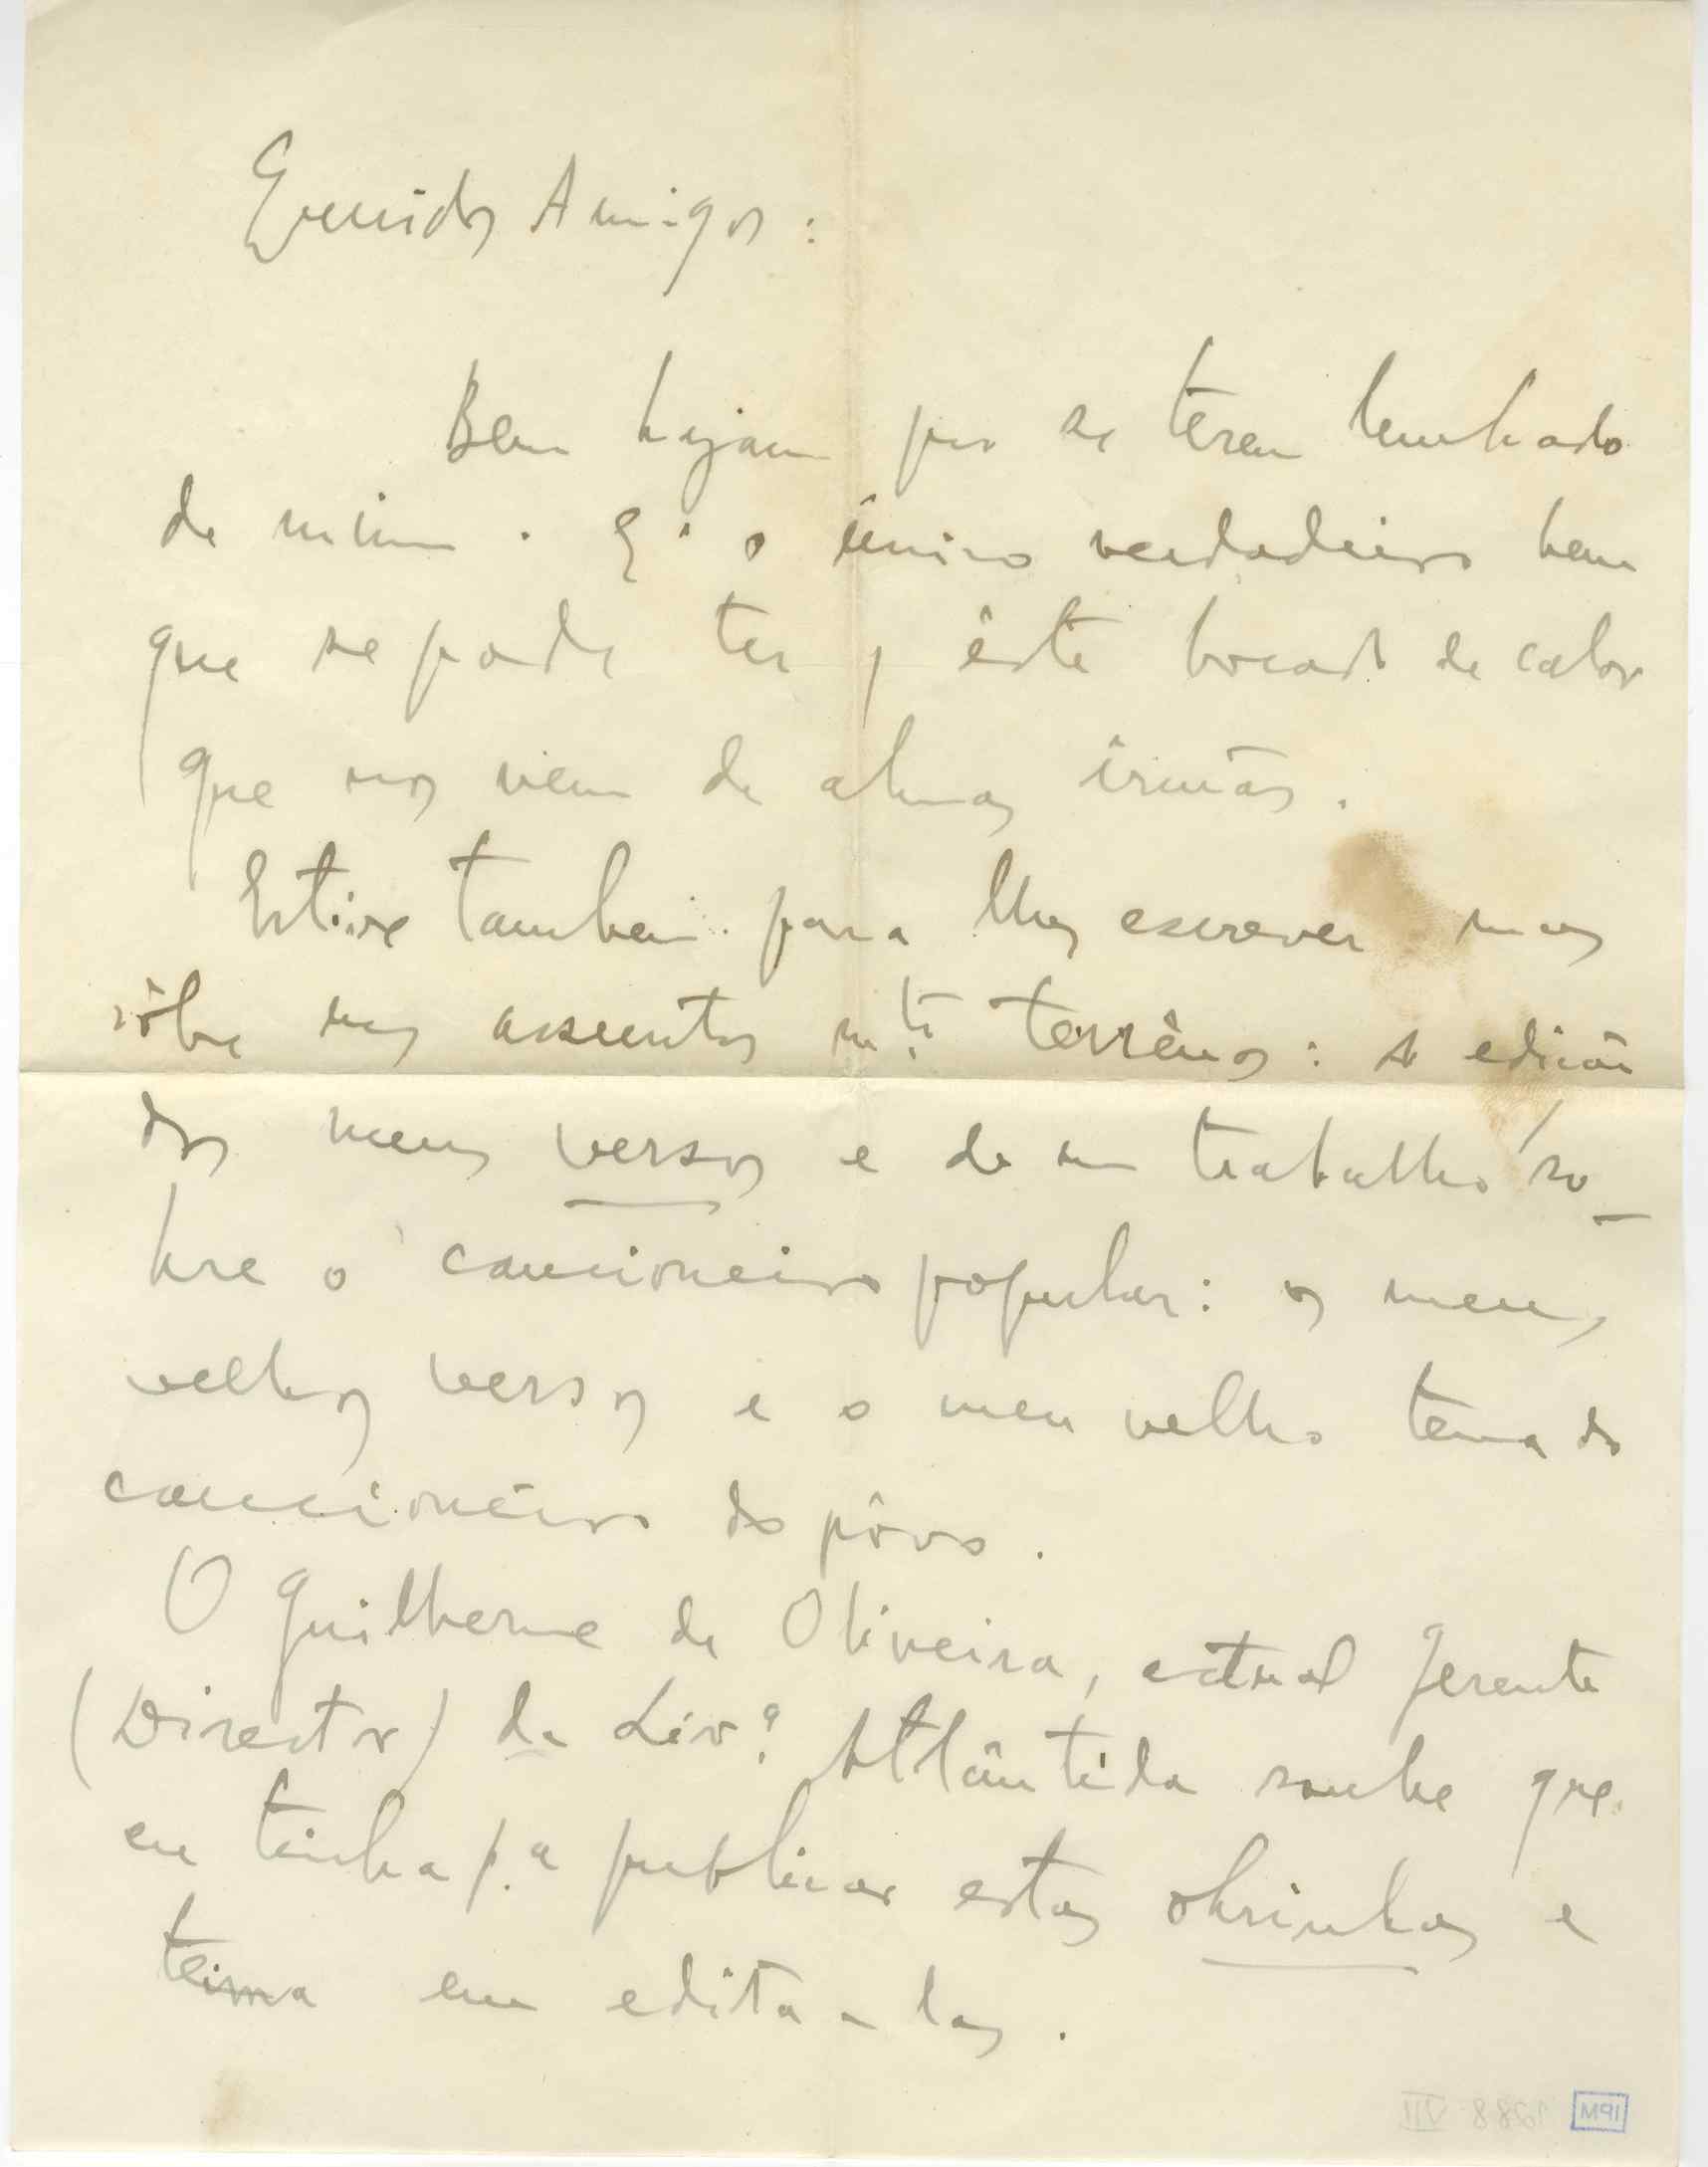 Queridos Amigos:
Bem hajam por se terem lembrado
de mim. E' o único verdadeiro bem
que se pode ter, êste bocado de calor
que nos vem de almas irmãs.
Estive tambem para lhes escrever mas
sôbre uns assuntos mto terrênos: A edição
dos meus versos e de um trabalho so-
bre o cancioneiro popular: os meus
velhos versos e o meu velho tema do
cancioneiro do pôvo.
O Guilherme de Oliveira, actual Gerente
(Director) da Livª Atlântida soube que
eu tinha p.a publicar estas obrinhas e
teima em edita-las.
IPM 1288 VII